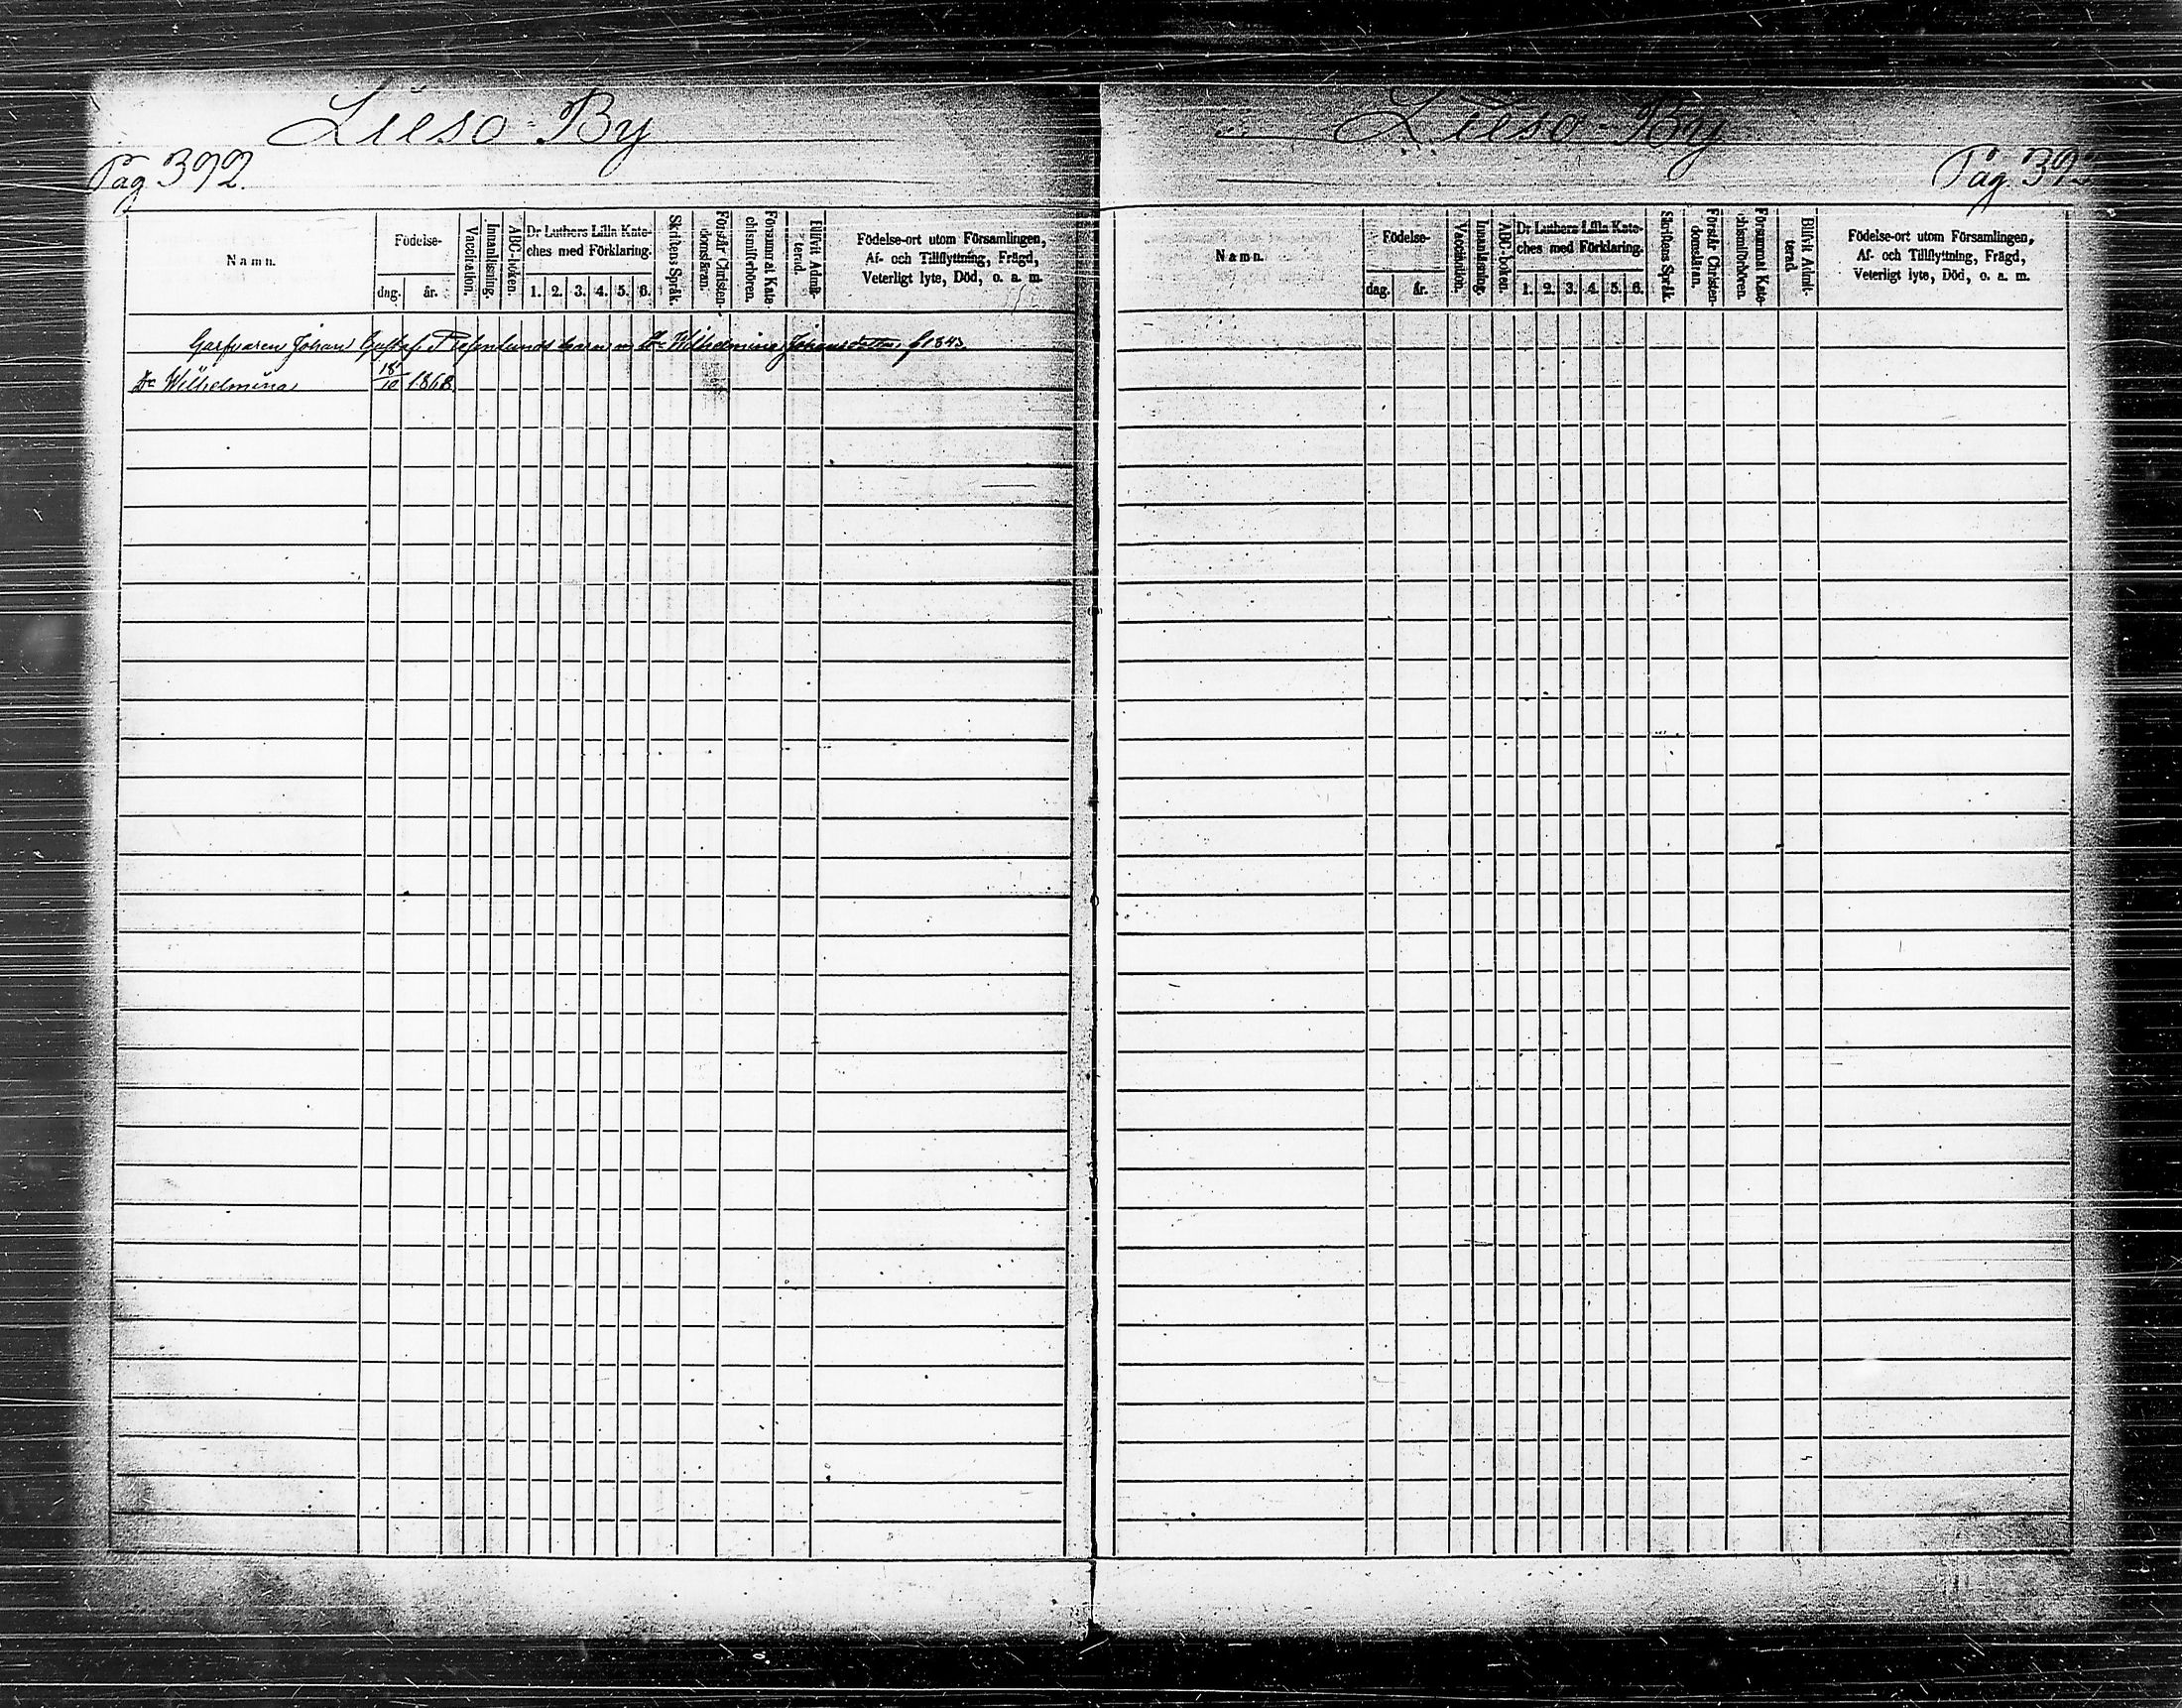 Lieso By
Pag 392.
Namn.
Födelse-
dag.
år.
Vaccination.
Innanläsning.
ABC-boken.
Dr Luthers Lilla Kate-
ches med Förklaring.
1. 2. 3. 4. 5. 6.
Skriftens Språk.
Förstår Christen-
domsläran.
Försummat Kate-
chismiförhören.
Blifvit Admit-
terad.
Födelse-ort utom Församlingen,
Af- och Tillflyttning, Frägd,
Veterligt lyte, Död, o. a. m.
Garfvaren Johan Gustaf barn m Wilhelmina Johansdotter f 1843
Wilhelmina 18/10 1868
Lieso-By
Pag. 393
Namn.
Födelse-
dag.
år.
Vaccination.
Innanläsning.
ABC-boken.
Dr Luthers Lilla Kate-
ches med Förklaring.
1. 2. 3. 4. 5. 6.
Skriftens Språk.
Förstår Christen-
domsläran.
Försummat Kate-
chismiförhören.
Blifvit Admit-
terad.
Födelse-ort utom Församlingen,
Af- och Tillflyttning, Frägd,
Veterligt lyte, Död, o. a. m.